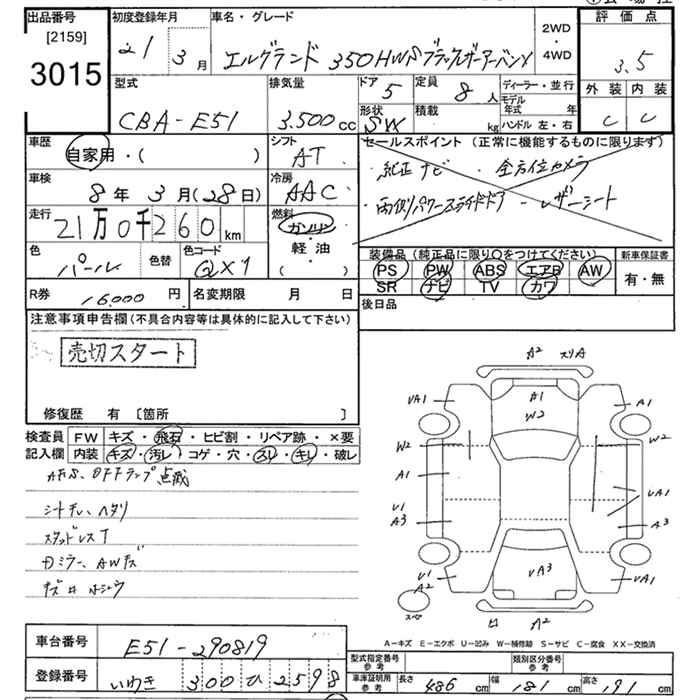 出品番号
[2159]
3015
初度登録年月
21 3月
車名・グレード
エルグランド 350HWSブラックレザーアーバンX
2WD
・
4WD
評価点
3.5
外装 内装
C C
型式
CBA-E51
排気量
3.500cc
ドア
5
定員
8人
形状
SW
積載
kg
ディーラー・並行
モデル
年式 年
ハンドル 左・右
車歴
自家用・( )
シフト
AT
セールスポイント (正常に機能するものに限ります)
・純正ナビ ・全方位カメラ
・両側パワースライドドア -レザーシート
車検
8年 3月(28日)
冷房
AAC
走行
21万0千260km
燃料
ガソリン
・
軽油
( )
色
パール
色替
色コード
QX1
装備品 (純正品に限り○をつけてください)
PS PW ABS エアB AW
SR ナビ TV カワ
新車保証書
有・無
R券 16,000円
名変期限 月 日
後日品
注意事項申告欄(不具合内容等は具体的に記入して下さい)
売切スタート
修復歴 有 〔箇所 〕
検査員 FW キズ・飛石・ヒビ割・リペア跡・×要
記入欄 内装 キズ・汚レ・コゲ・穴・スレ・キレ・破レ
AFS、OFFランプ点滅
シートヤレ、ヘタリ
スタッドレスT
Dミラー、AWキズ
A2 スリA
A1
W2
VA1
A1
W2
W2
A1
VA1
U1
A3
A3
VA3
U1
A2
VA1
スペア
ロ A2
A-キズ E-エクボ U-凹み W-補修跡 S-サビ C-腐食 XX-交換済
車台番号 E51-290819
登録番号 いわき 300 ひ 2598
型式指定番号
参考
類別区分番号
参考
車庫証明用
参考
長さ 486cm
幅 181cm
高さ 191cm